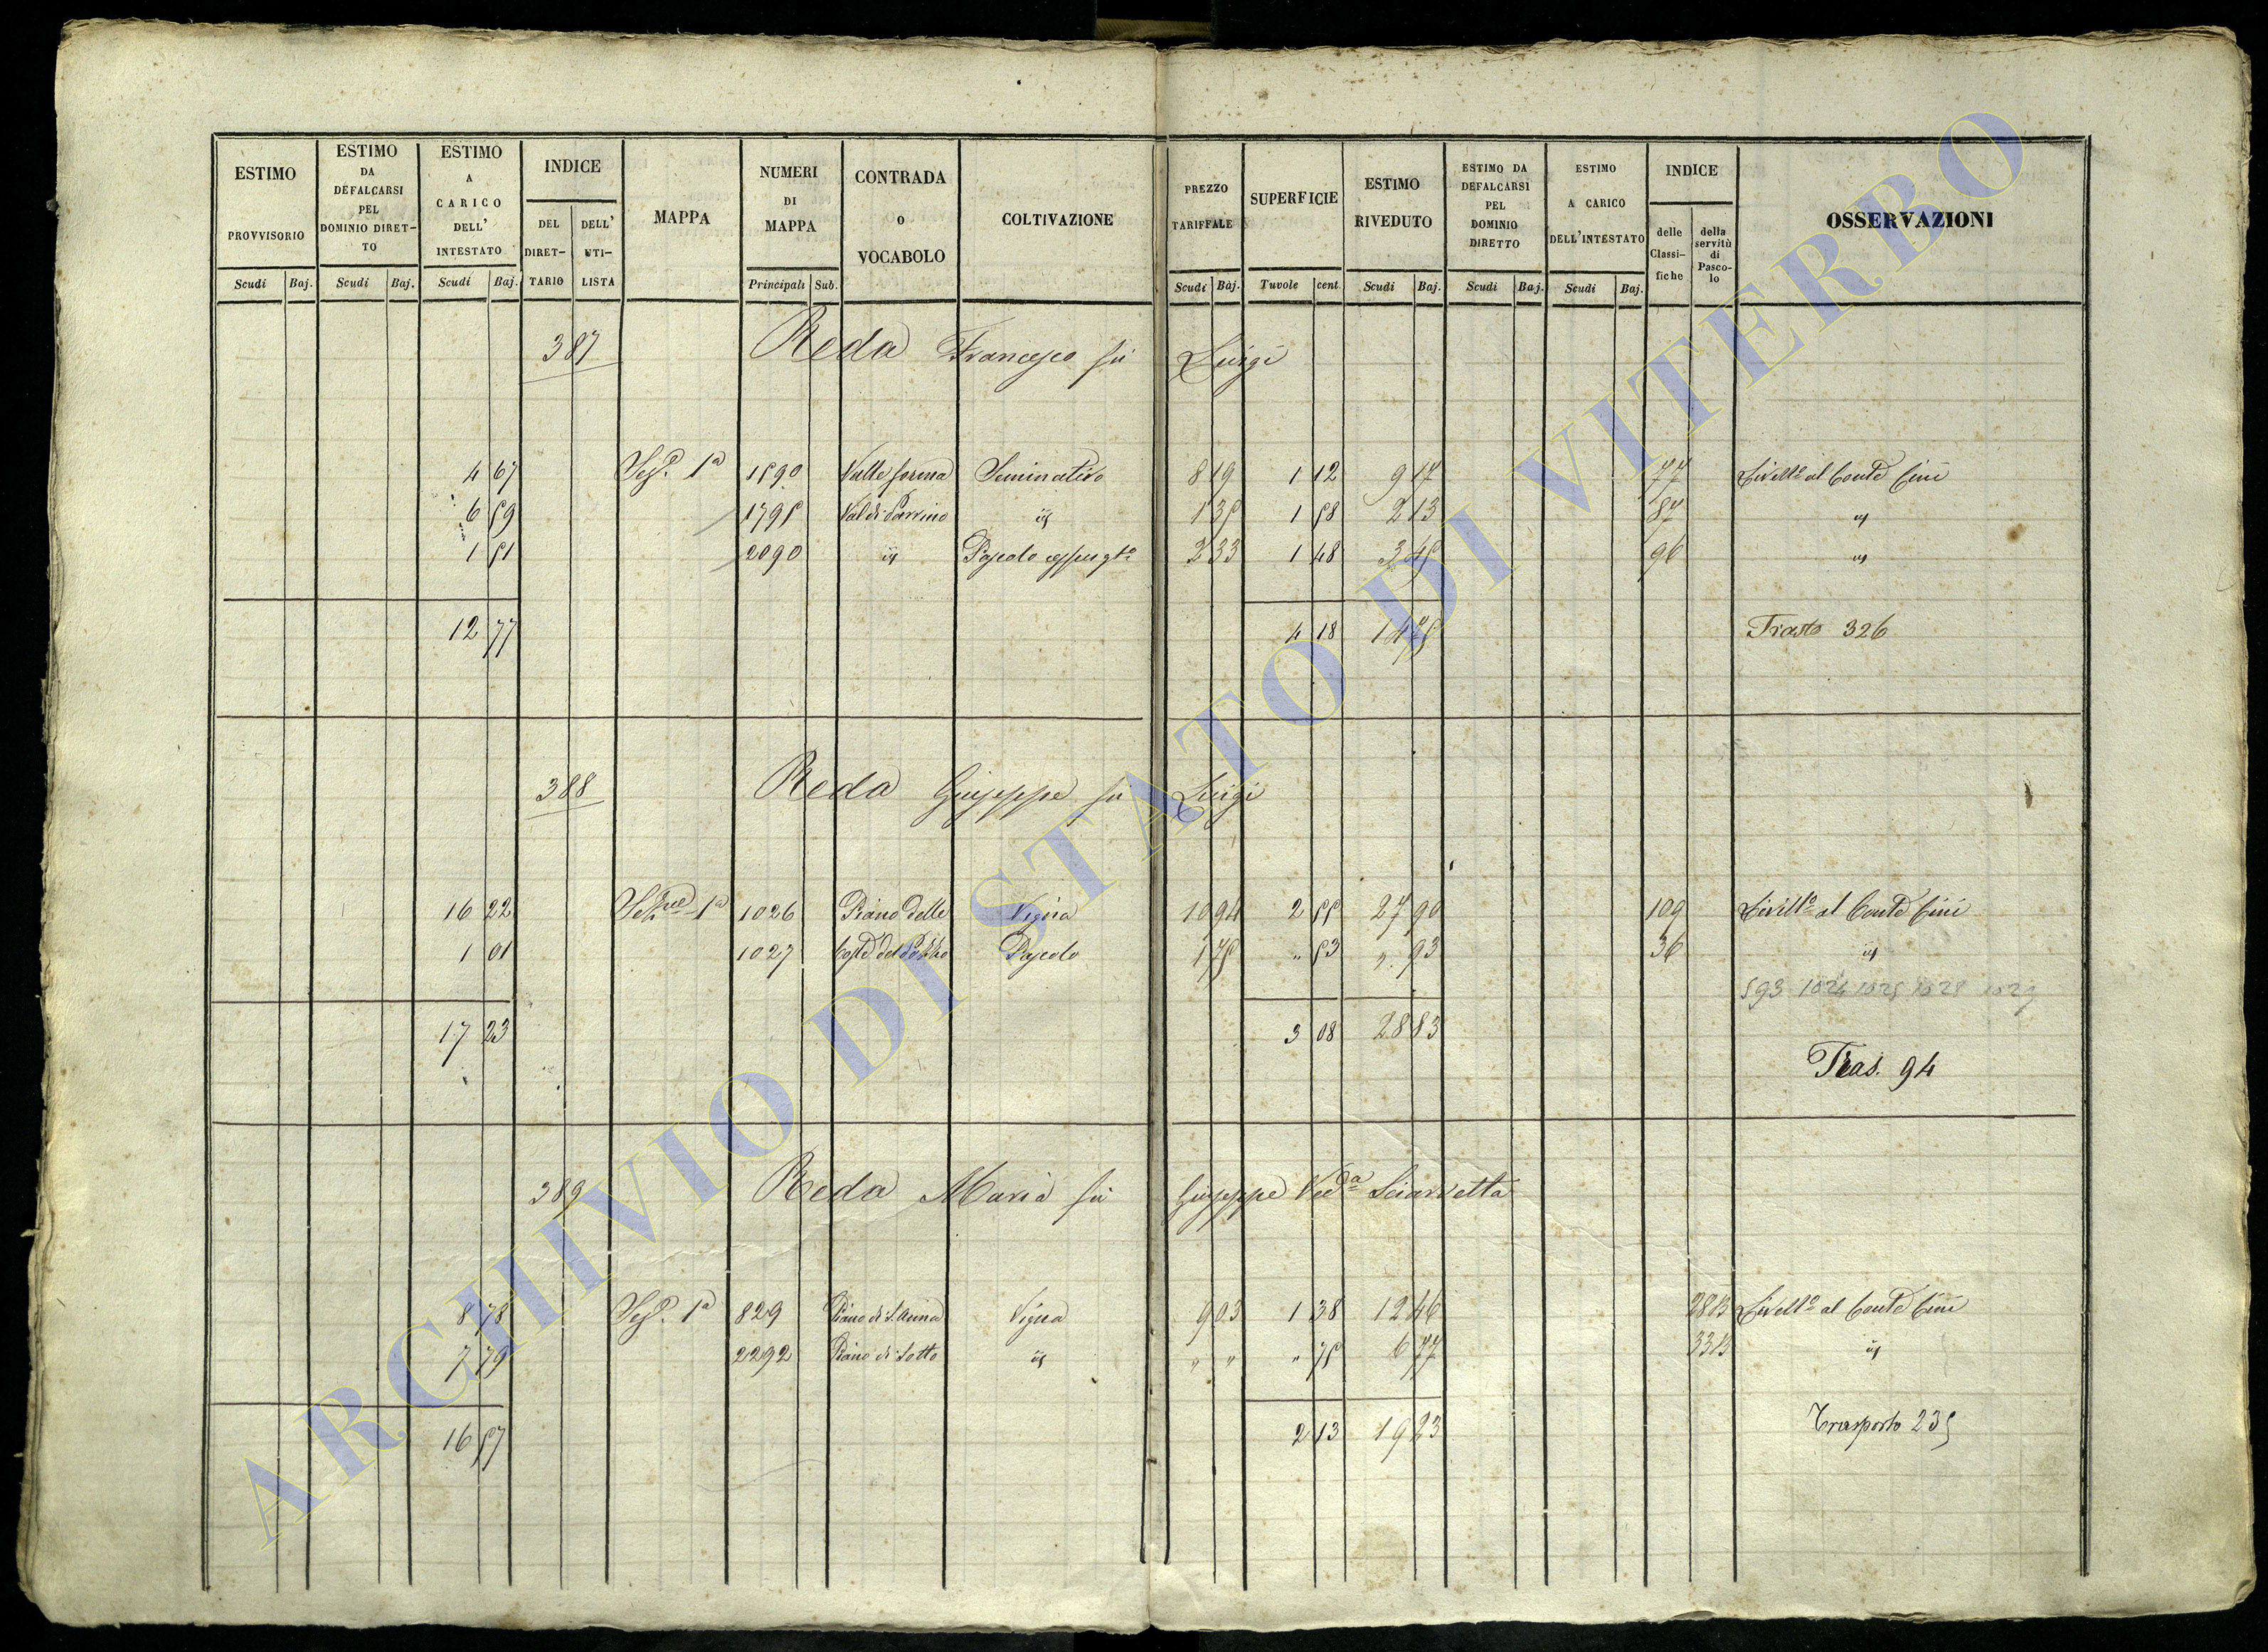 ESTIMO PROVVISORIO Scudi Baj.
ESTIMO DA DEFALCARSI PEL DOMINIO DIRETTO Scudi Baj.
ESTIMO A CARICO DELL' INTESTATO Scudi Baj.
INDICE DEL DIRETTARIO DELL' UTILISTA
MAPPA
NUMERI DI MAPPA Principali Sub.
CONTRADA O VOCABOLO
COLTIVAZIONE
PREZZO TARIFFALE Scudi Baj.
SUPERFICIE Tavole cent.
ESTIMO RIVEDUTO Scudi Baj.
ESTIMO DA DEFALCARSI PEL DOMINIO DIRETTO Scudi Baj.
ESTIMO A CARICO DELL'INTESTATO Scudi Baj.
INDICE delle Classifiche della servitù di Pascolo
OSSERVAZIONI
387 Reda Francesco fu Luigi
4 67 Sez.e 1a 1590 Valle forma Seminativo 8 19 1 12 9 17 77 Livell.o al Conte Cini
6 59 1795 Val di id 1 35 1 58 2 13 87 id
1 51 2090 id Pascolo 2 33 1 48 3 45 96 id
12 77 4 18 14 75 Trasto 326
388 Reda Giuseppe fu Luigi
16 22 Sez.ne 1a 1026 Piano delle Vigna 10 94 2 55 27 90 109 Livell.o al Conte Cini
1 01 1027 Coste del Pozzo Pascolo 1 75 " 53 " 93 36 id
593 1024 1025 1028 1029
17 23 3 08 28 83
Tras. 94
389 Reda Maria fu Giuseppe Ved.a Sciarretta
8 78 Sez.e 1a 829 Piano di S. Anna Vigna 9 03 1 38 12 46 28B Livell.o al Conte Cini
7 79 2292 Piano di Sotto id " " " 75 6 77 33B id
16 57 2 13 19 23 Trasporto 235
ARCHIVIO DI STATO DI VITERBO